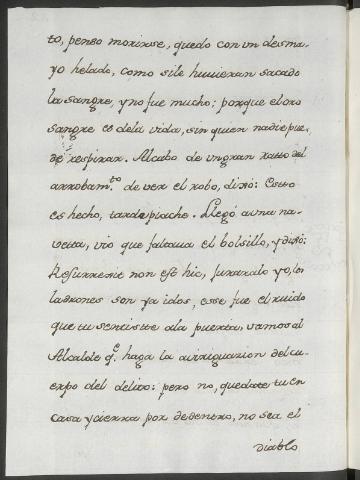 to, penso morirse, quedo con un desma-
yo helado, como si le huuieran sacado
la sangre, y no fue mucho; porque el oro
sangre es dela vida, sin quien nadie pue-
de respirar. Al cabo de un gran ratto del
arrobam.to de ver el robo, dixo: Esto
es hecho, tarde piache. Llegó a una na-
veta, vio que faltaua el bolsillo, y dixo:
Resurrexit non est hic, los
ladrones son ya idos, esse fue el ruido
que tu sentiste ala puerta, vamos al
Alcalde q.e haga la auiriguazion del cu-
erpo del delito: pero no, quedate tu en
casa y cierra por de dentro, no sea el
diablo